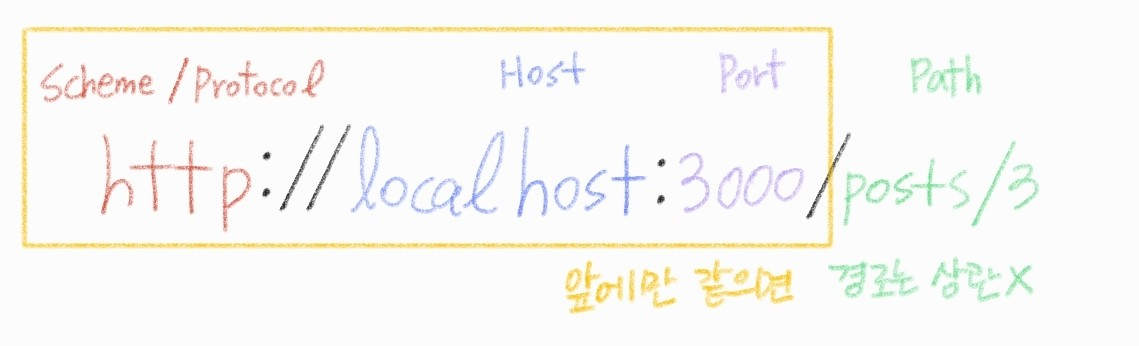 Scheme / Protocol Host Port Path
http://localhost:3000/posts/3
앞에만 같의면 경로는 상관 X